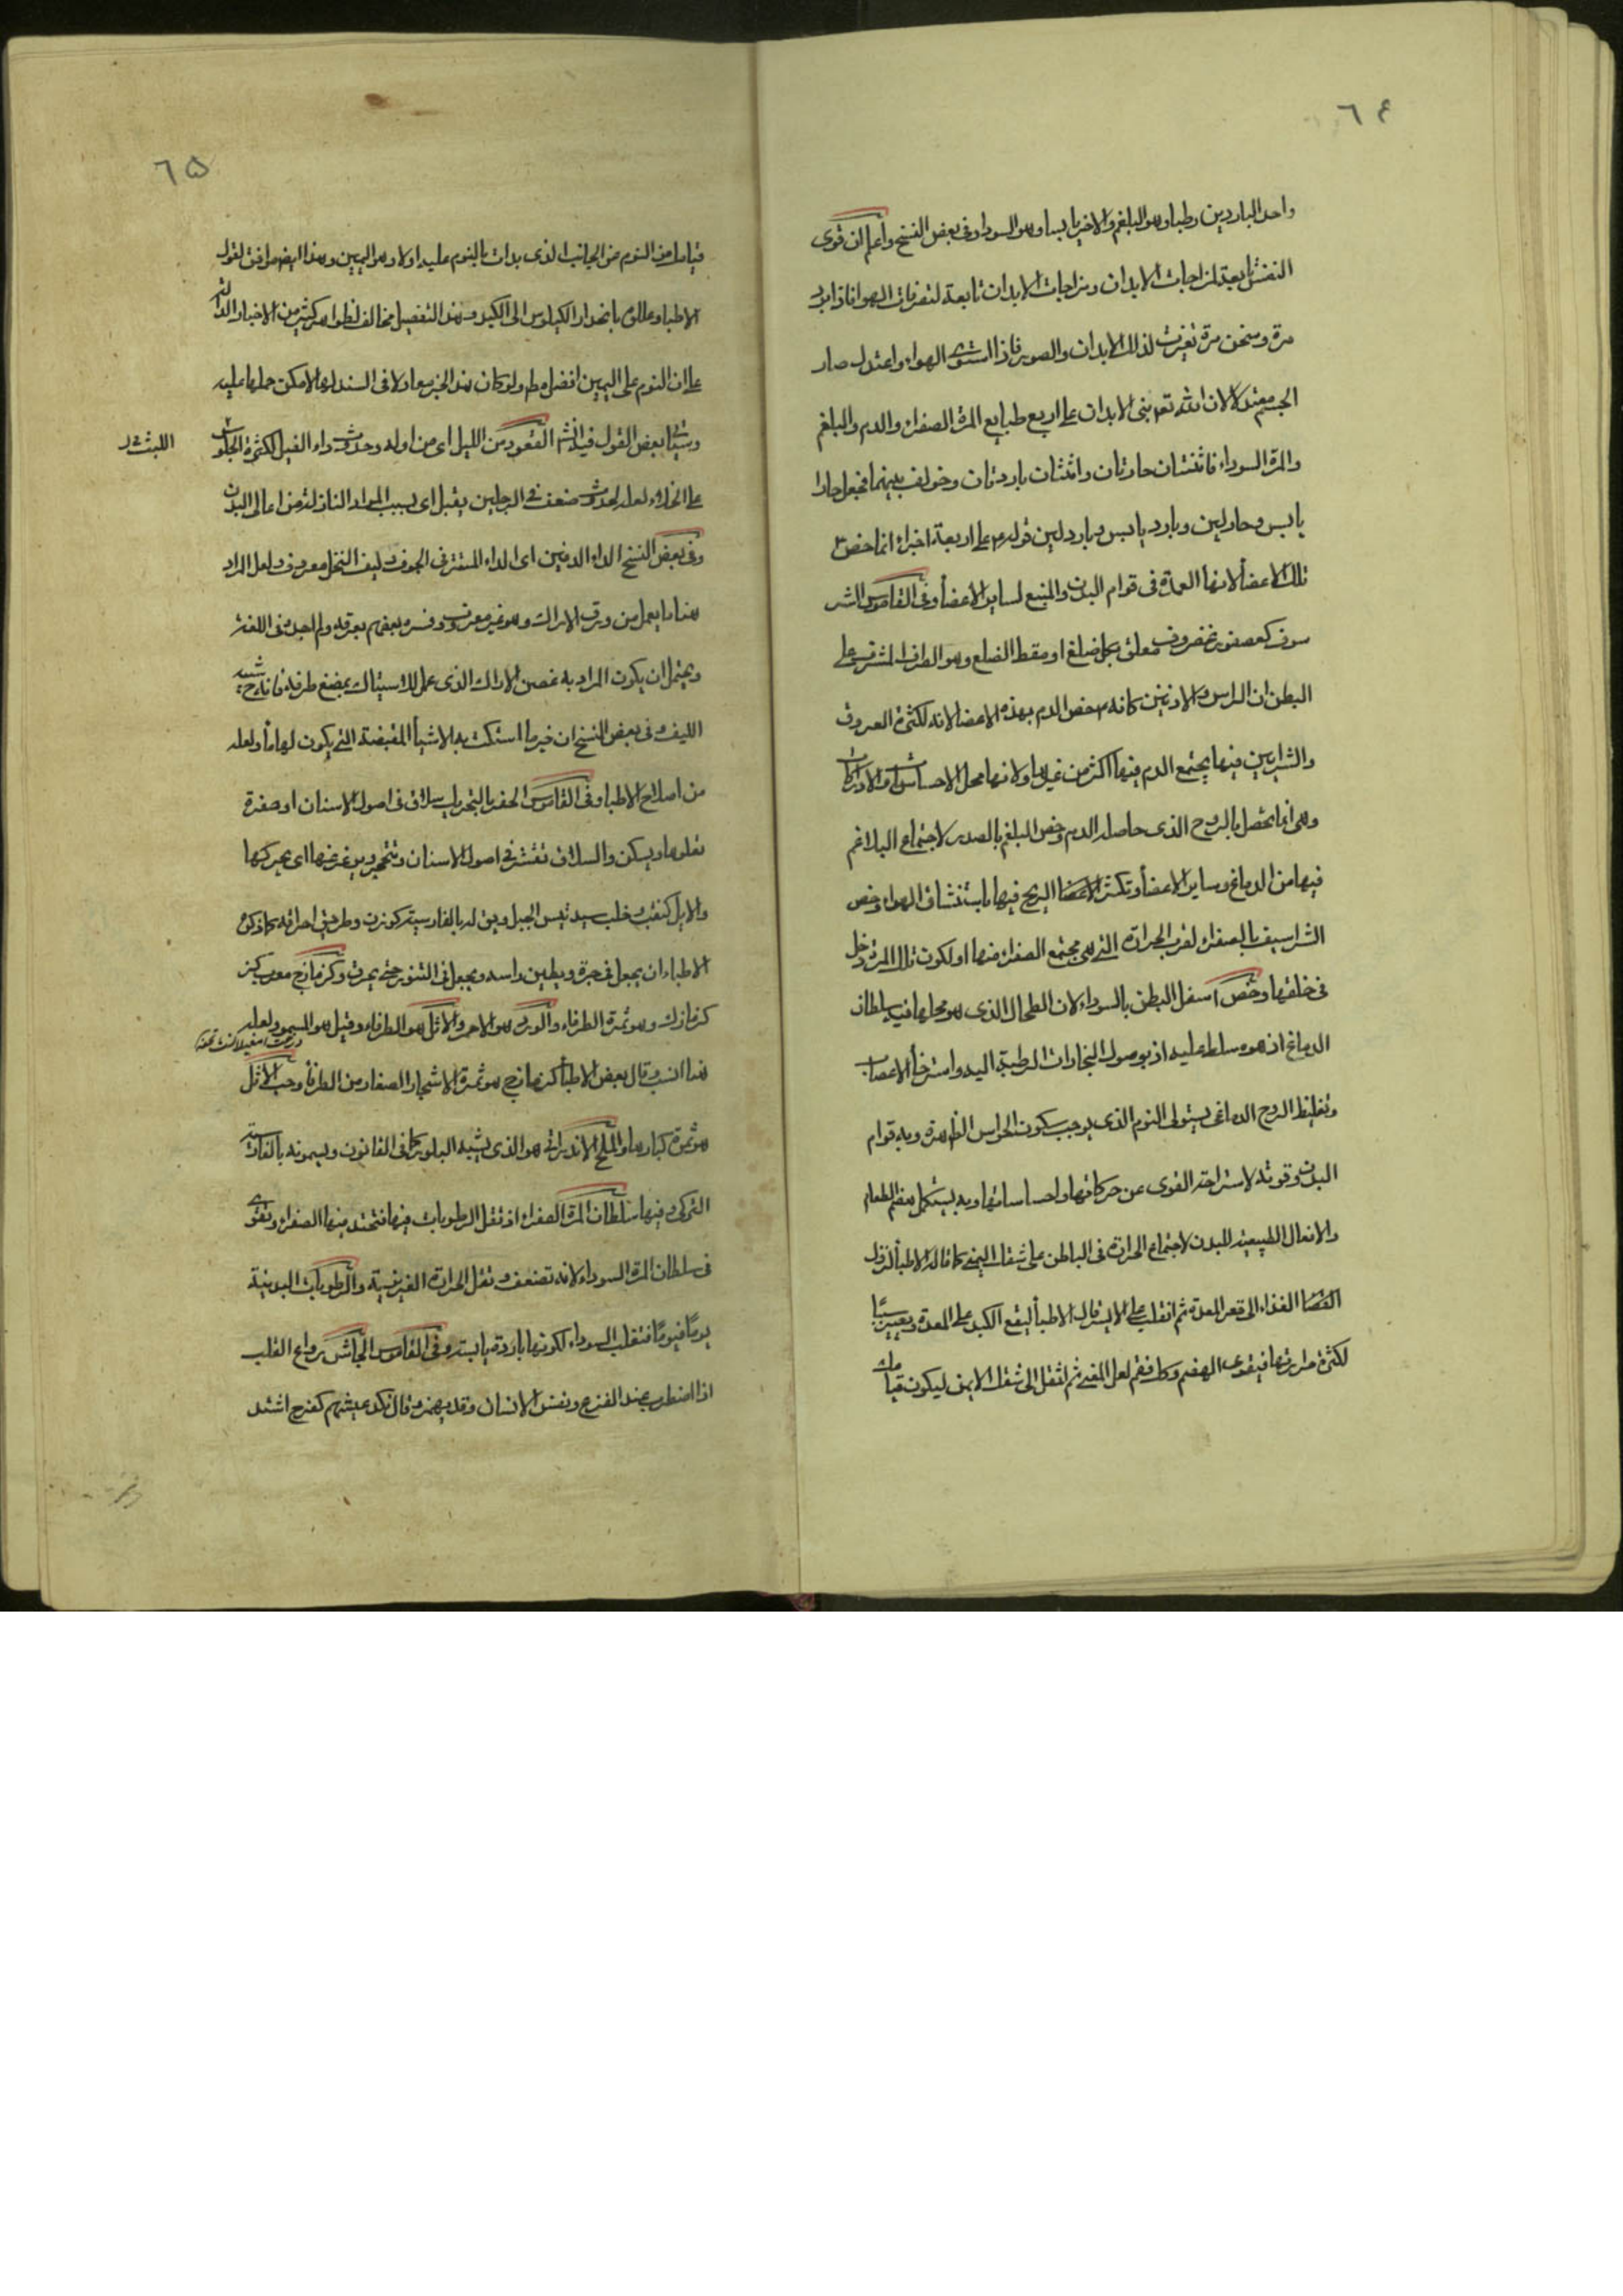 ٦٤
واحد الباردين رطبا وهو البلغم والاخر يابسا وهو السودا وفى بعض النسخ واعلم ان قوى
النفس تابعة لمزاجات الابدان ومزاجات الابدان تابعة لتصرفات الهوا فاذا برد
مرة وسخن مرة تغيرت لذلك الابدان والصور فاذا استوى الهواء واعتدل صار
الجسم معتدلا لان الله تعه بنى الابدان على اربع طبايع المرة الصفراء والدم والبلغم
والمرة السوداء فاثنتان حارتان واثنتان باردتان وخولف بينهما فجعل حارا
يابس وحار لين وبارد يابس وبارد لين قوله ع على اربعة اجزاء انما خص ع
تلك الاعضأ لانها العمدة فى قوام البدن والمنبع لساير الاعضأ وفى القاموس الشر
سوف كعصفور غضروف معلق بكل ضلع او مقط الضلع وهو الطرف المشرف على
البطن ان الراس والاذنين كانه ع خص الدم بهذه الاعضا لانه لكثرة العروق
والشرايين فيها يجتمع الدم فيها اكثر من غيرها ولانها محل الاحساسات والادراكات
وهى انما تحصل بالروح الذى حامله الدم وخص البلغم بالصدر لاجتماع البلاغم
فيها من الدماغ وساير الاعضأ وتكثر الريح فيها باستنشاق الهواء وخص
الشراسيف بالصفراء لقرب المرارة التى هى مجتمع الصفراء منها او لكون تلك المرة دخل
فى خلقها وخص اسفل البطن بالسوداء لان الطحال الذى هو محلها فيه سلطان
الدماغ اذ هو مسلط عليه اذ بوصول البخارات الرطبة اليه واسترخأ الاعصاب
وتغليظ الروح الدماغى يستولى النوم الذى يوجب سكون الحواس الظاهرة وبه قوام
البدن وقوته لاستراحة القوى عن حركاتها واحساساتها وبه يستكمل هضم الطعام
والافعال الطبيعية للبدن لاجتماع الحرارة فى الباطن على شقك اليمنى كما قاله الاطبأ لنزول
الغذاء الى قعر المعدة ثم انقلب على الايسر قال الاطبأ ليقع الكبد على المعدة ويصير سببًا
لكثرة حرارتها فيقوى الهضم وكك فقم لعل المعنى ثم انتقل الى شقك الايمن ليكون قيامك
٦٥
قيامك من النوم من الجانب الذى بدات بالنوم عليه اولا وهو اليمين وهذا ايضا موافق لقول
الاطباء وعللوه بانحدار الكيلوس الى الكبد وهذا التفصيل مخالف لظواهر كثير من الاخبار الدالة
على ان النوم على اليمين افضل مط ولو كان هذا الخبر معادلا فى السند لها لامكن حملها عليه
وسيأتى بعض القول فيه انش القعود من الليل اى من اوله وحدوث داء الفيل لكثرة الجلوس
على الخلاء لعله لحدوث ضعف فى الرجلين يقبل اى بسبب المواد النازلة من اعالى البدن
وفى بعض النسخ الداء الدفين اى الداء المستتر فى الجوف وليف النخل معروف ولعل المراد
هنا ما يعمل من ورق الاراك وهو غير معروف وفسره بعضهم بعرقه ولم اجده فى اللغة
ويحتمل ان يكون المراد به غصن الاراك الذى عمل للاستياك بمضغ طرفه فانه ح شبيه
الليف وفى بعض النسخ ان خير ما استكت به الاشيأ المقبضة التى يكون لها مأ ولعله
من اصلاح الاطباء وفى القاموس الحفر بالتحريك سلاق فى اصول الاسنان او صفرة
تعلوها ويسكن والسلاق تقشر فى اصول الاسنان
والايل كقنب وخلب وسيد تيس الجبل ويق له بالفارسية كوزن وطريق احراقه كما ذكره
الاطباء ان يجعل فى جرة ويطين راسه ويجعل فى التنور حتى يحرق وكزمازج معرب كز
كزمازك وهو ثمرة الطرفاء والورد هو الاحمر والاثل هو الطرفاء وقيل هو السمر ولعله
هذا انسب وقال بعض الاطبأ كزمازج هو ثمرة الاشجار الصغار من الطرفأ وحب الاثل
هو ثمرة كبارها والملح الاندرانى هو الذى يشبه البلور كما فى القانون ويسمونه بالفارسية
التركى وفيها سلطان المرة الصفراء اذ تقل الرطوبات فيها فتحتد منها الصفراء وتقوى
فى سلطان المرة السوداء لانه تضعف وتقل الحرارة الغريزية والرطوبات البدنية
يومًا فيومًا فتغلب السوداء لكونها باردة يابسة وفى القاموس الجاش رواع القلب
اذا اضطرب عند الفزع ونفس الانسان وقد يهمز وقال نكد عيشهم كفرح اشتد